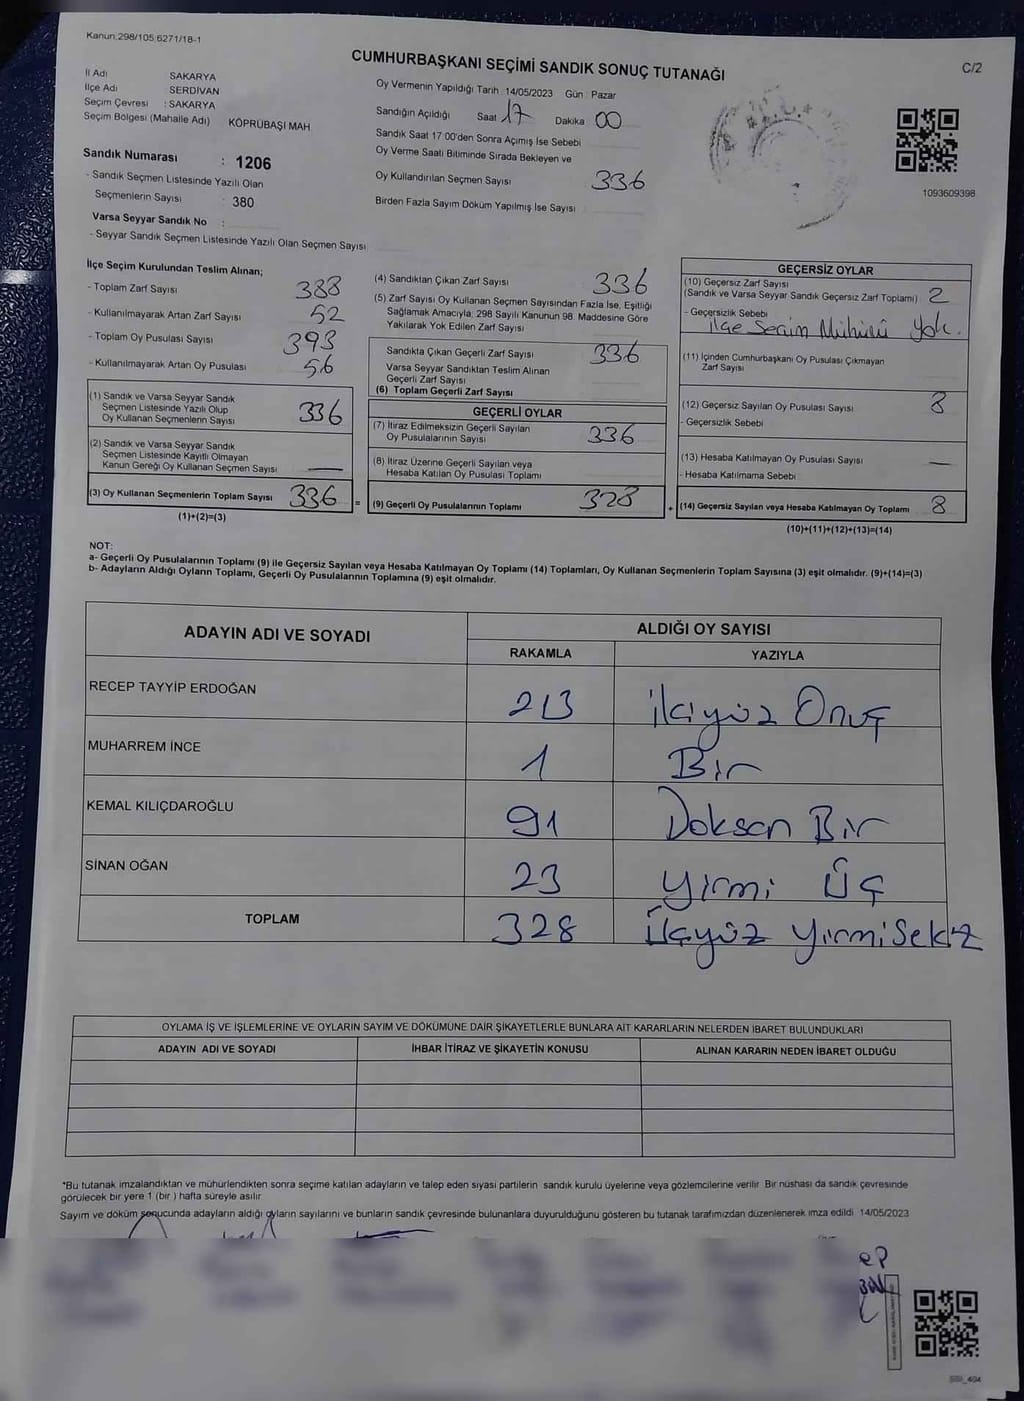 Kanun:298/105;6271/18-1
CUMHURBAŞKANI SEÇİMİ SANDIK SONUÇ TUTANAĞI
C/2
İl Adı SAKARYA
İlçe Adı SERDİVAN
Seçim Çevresi : SAKARYA
Seçim Bölgesi (Mahalle Adı) KÖPRÜBAŞI MAH
Sandık Numarası : 1206
- Sandık Seçmen Listesinde Yazılı Olan
Seçmenlerin Sayısı : 380
Varsa Seyyar Sandık No :
- Seyyar Sandık Seçmen Listesinde Yazılı Olan Seçmen Sayısı
Oy Vermenin Yapıldığı Tarih 14/05/2023 Gün : Pazar
Sandığın Açıldığı Saat 17 Dakika 00
Sandık Saat 17:00'den Sonra Açımış İse Sebebi
Oy Verme Saati Bitiminde Sırada Bekleyen ve
Oy Kullandırılan Seçmen Sayısı 336
Birden Fazla Sayım Döküm Yapılmış İse Sayısı
1093609398
İlçe Seçim Kurulundan Teslim Alınan;
- Toplam Zarf Sayısı 388
- Kullanılmayarak Artan Zarf Sayısı 52
- Toplam Oy Pusulası Sayısı 393
- Kullanılmayarak Artan Oy Pusulası 56
(1) Sandık ve Varsa Seyyar Sandık
Seçmen Listesinde Yazılı Olup
Oy Kullanan Seçmenlerin Sayısı 336
(2) Sandık ve Varsa Seyyar Sandık
Seçmen Listesinde Kayıtlı Olmayan
Kanun Gereği Oy Kullanan Seçmen Sayısı —
(3) Oy Kullanan Seçmenlerin Toplam Sayısı 336 =
(1)+(2)=(3)
(4) Sandıktan Çıkan Zarf Sayısı 336
(5) Zarf Sayısı Oy Kullanan Seçmen Sayısından Fazla İse, Eşitliği
Sağlamak Amacıyla, 298 Sayılı Kanunun 98. Maddesine Göre
Yakılarak Yok Edilen Zarf Sayısı
Sandıkta Çıkan Geçerli Zarf Sayısı 336
Varsa Seyyar Sandıktan Teslim Alınan
Geçerli Zarf Sayısı
(6) Toplam Geçerli Zarf Sayısı
GEÇERLİ OYLAR
(7) İtiraz Edilmeksizin Geçerli Sayılan
Oy Pusulalarının Sayısı 336
(8) İtiraz Üzerine Geçerli Sayılan veya
Hesaba Katılan Oy Pusulası Toplamı
(9) Geçerli Oy Pusulalarının Toplamı 328 +
GEÇERSİZ OYLAR
(10) Geçersiz Zarf Sayısı
(Sandık ve Varsa Seyyar Sandık Geçersiz Zarf Toplamı) 2
- Geçersizlik Sebebi
ilçe Seçim Mühürü Yok.
(11) İçinden Cumhurbaşkanı Oy Pusulası Çıkmayan
Zarf Sayısı
(12) Geçersiz Sayılan Oy Pusulası Sayısı 8
- Geçersizlik Sebebi
(13) Hesaba Katılmayan Oy Pusulası Sayısı —
- Hesaba Katılmama Sebebi
(14) Geçersiz Sayılan veya Hesaba Katılmayan Oy Toplamı 8
(10)+(11)+(12)+(13)=(14)
NOT:
a- Geçerli Oy Pusulalarının Toplamı (9) ile Geçersiz Sayılan veya Hesaba Katılmayan Oy Toplamı (14) Toplamları, Oy Kullanan Seçmenlerin Toplam Sayısına (3) eşit olmalıdır. (9)+(14)=(3)
b- Adayların Aldığı Oyların Toplamı, Geçerli Oy Pusulalarının Toplamına (9) eşit olmalıdır.
ADAYIN ADI VE SOYADI ALDIĞI OY SAYISI
RAKAMLA YAZIYLA
RECEP TAYYİP ERDOĞAN 213 ikiyüz Onüç
MUHARREM İNCE 1 Bir
KEMAL KILIÇDAROĞLU 91 Doksan Bir
SİNAN OĞAN 23 yirmi Üç
TOPLAM 328 Üçyüz Yirmi Sekiz
OYLAMA İŞ VE İŞLEMLERİNE VE OYLARIN SAYIM VE DÖKÜMÜNE DAİR ŞİKAYETLERLE BUNLARA AİT KARARLARIN NELERDEN İBARET BULUNDUKLARI
ADAYIN ADI VE SOYADI İHBAR İTİRAZ VE ŞİKAYETİN KONUSU ALINAN KARARIN NEDEN İBARET OLDUĞU
*Bu tutanak imzalandıktan ve mühürlendikten sonra seçime katılan adayların ve talep eden siyasi partilerin sandık kurulu üyelerine veya gözlemcilerine verilir. Bir nüshası da sandık çevresinde
görülecek bir yere 1 (bir ) hafta süreyle asılır
Sayım ve döküm sonucunda adayların aldığı oyların sayılarını ve bunların sandık çevresinde bulunanlara duyurulduğunu gösteren bu tutanak tarafımızdan düzenlenerek imza edildi 14/05/2023